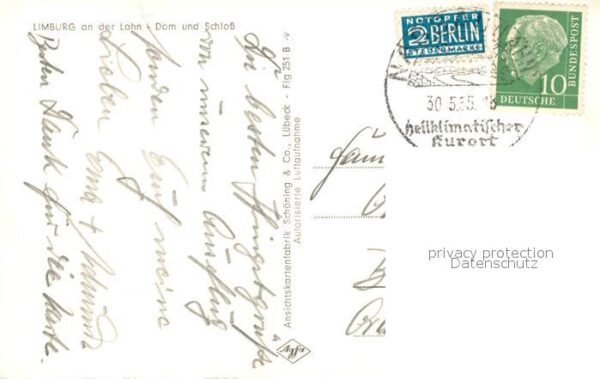 LIMBURG an der Lahn - Dom und Schloß
Die besten Pfingstgrüße
von unserem Ausflug
senden Euch meine
Lieben Erna +
Besten Dank für die Karte.
Ansichtskartenfabrik Schöning & Co., Lübeck - Flg 251 B -v-
Autorisierte Luftaufnahme
Agfa
NOTOPFER
2 BERLIN
STEUERMARKE
10
DEUTSCHE
BUNDESPOST
30.5.55.
heilklimatischer
Kurort
privacy protection
Datenschutz